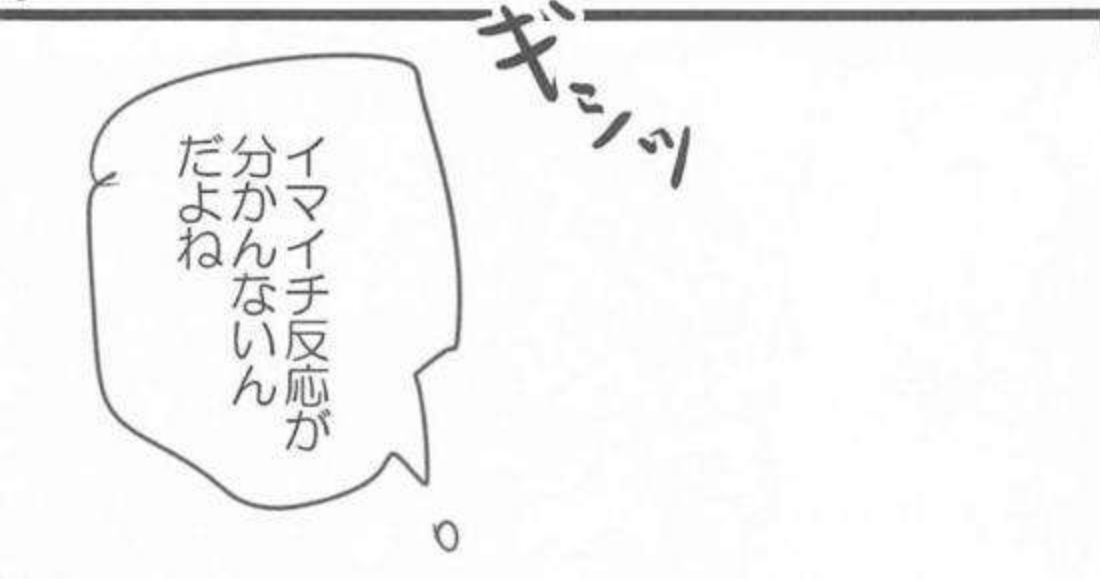 ギシッ
イマイチ反応が
分かんないん
だよね